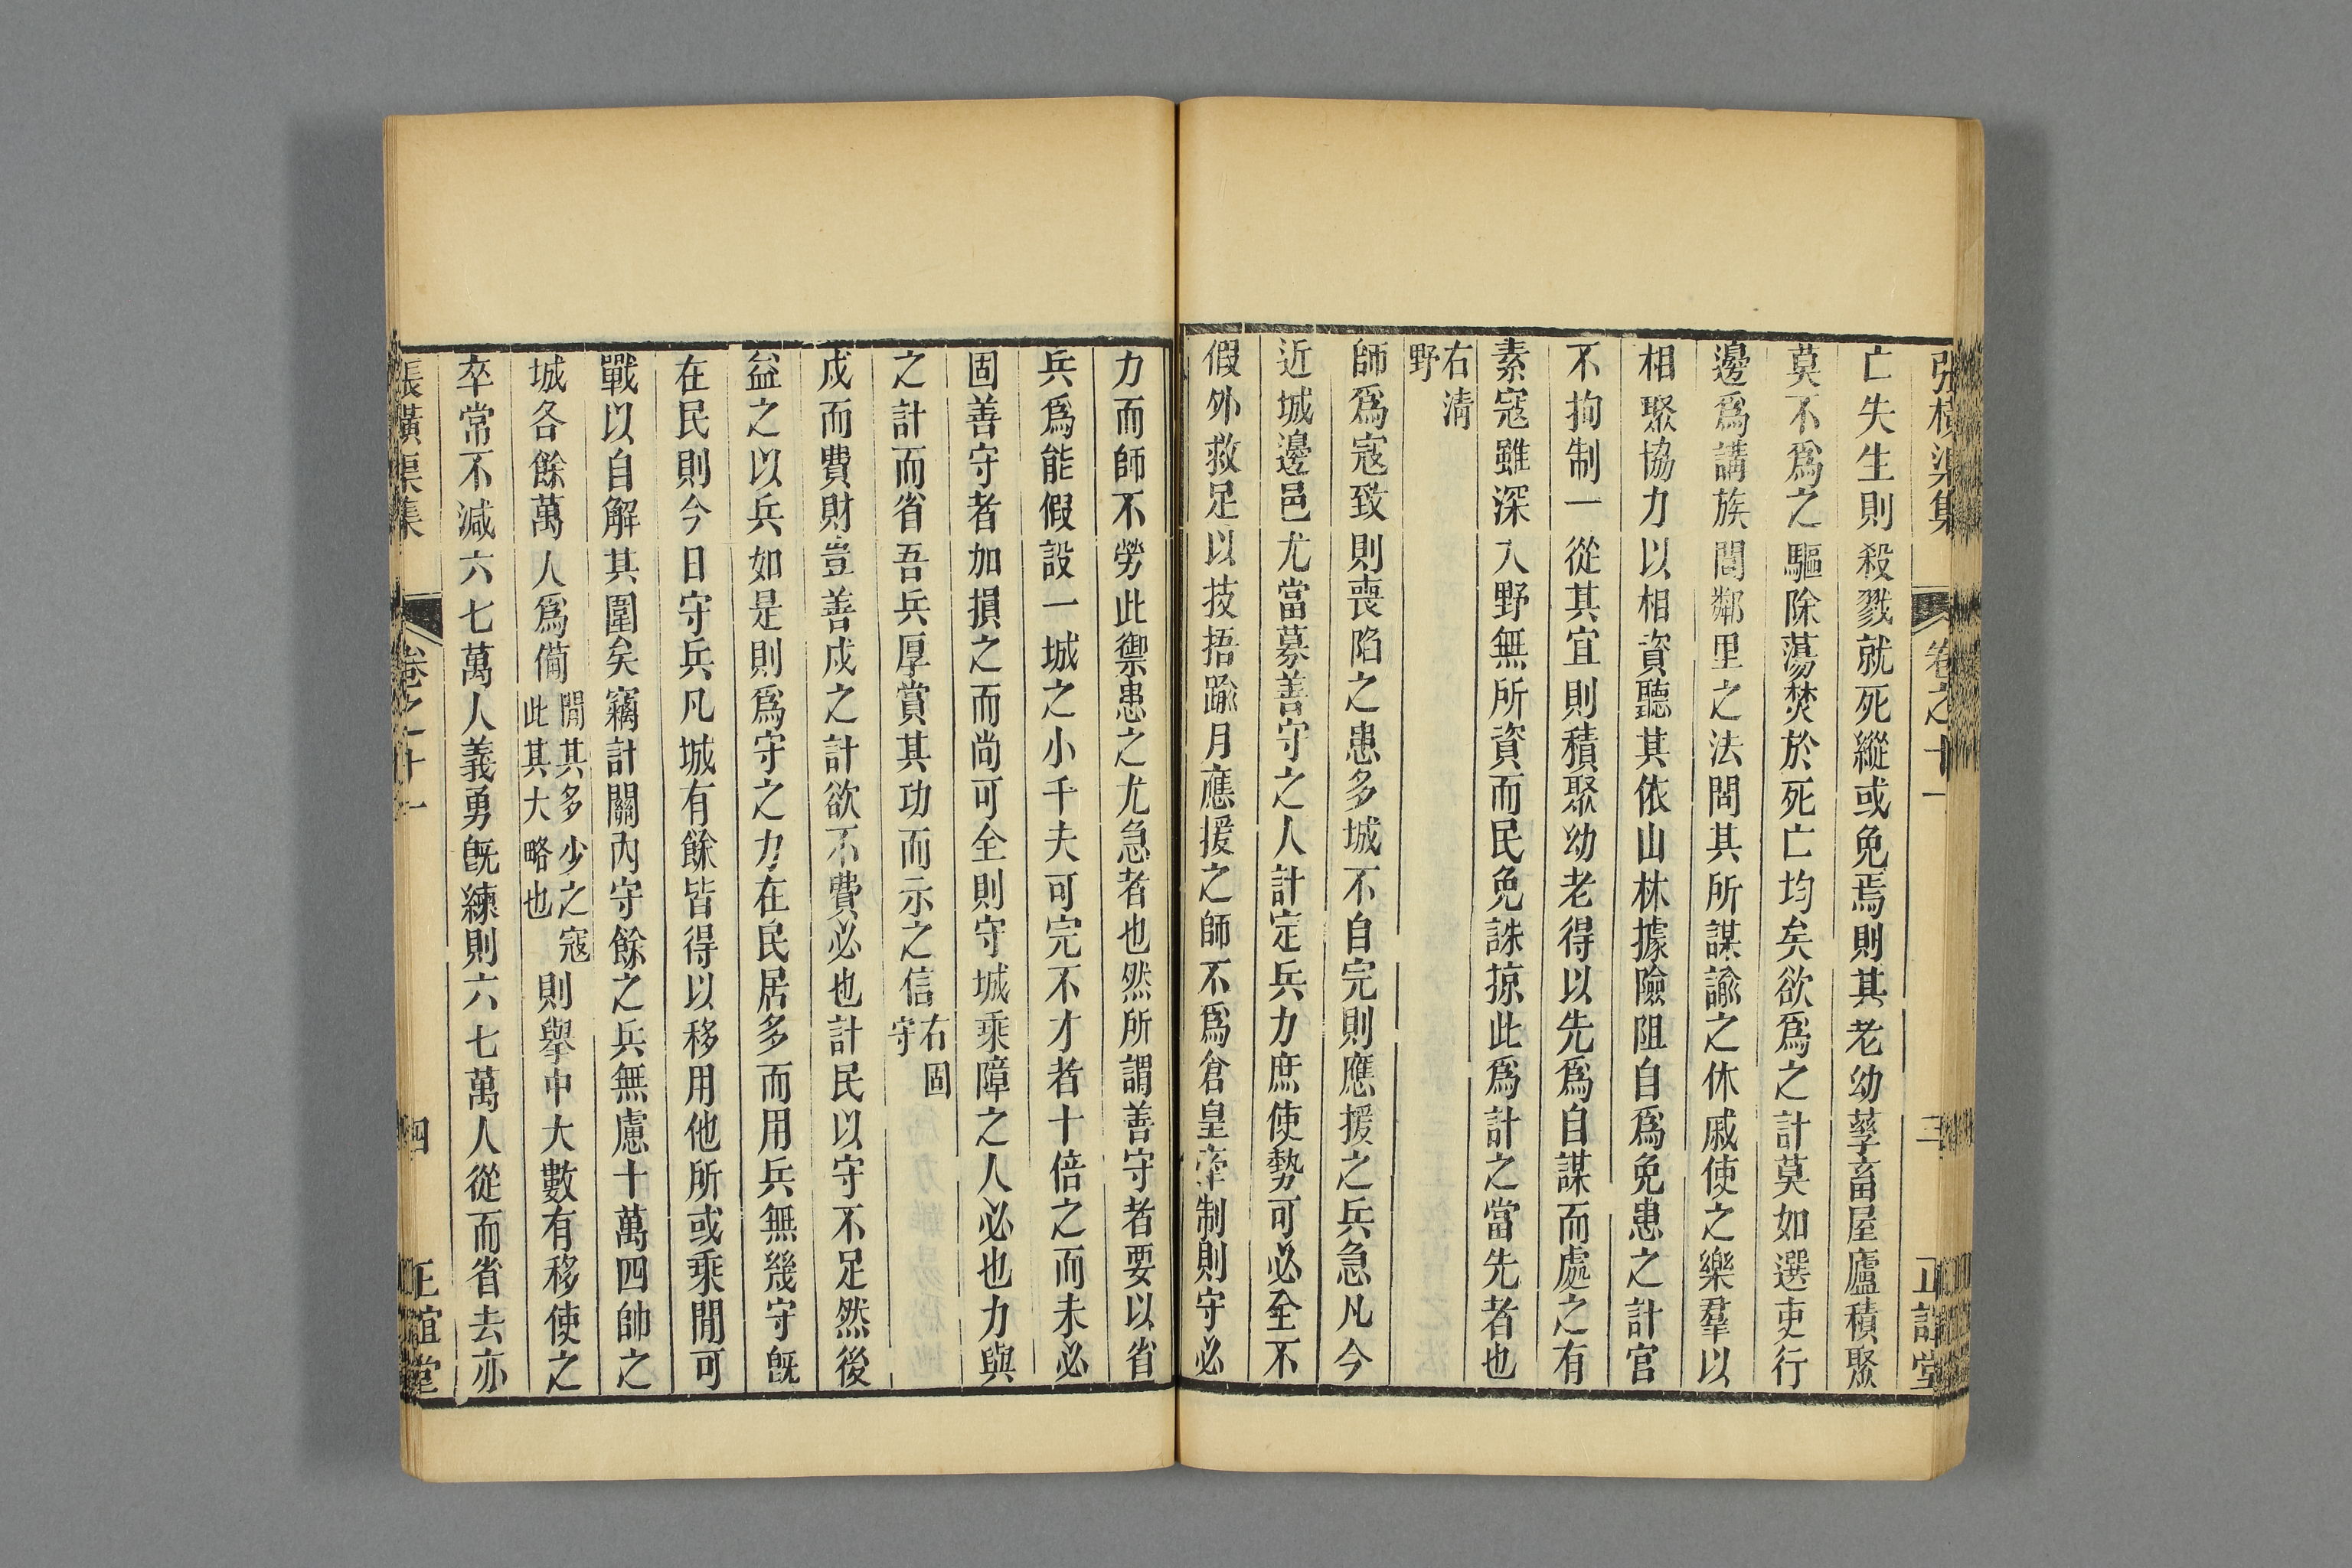 張橫渠集 卷之十一 三 正誼堂
亡失生則殺戮就死縱或免焉則其老幼孳畜屋廬積聚
莫不爲之驅除蕩焚於死亡均矣欲爲之計莫如選吏行
邊爲講族閭鄰里之法問其所謀諭之休戚使之樂羣以
相聚協力以相資聽其依山林據險阻自爲免患之計官
不拘制一從其宜則積聚幼老得以先爲自謀而處之有
素寇雖深入野無所資而民免誅掠此爲計之當先者也
右清
野
師爲寇致則喪陷之患多城不自完則應援之兵急凡今
近城邊邑尤當募善守之人計定兵力庶使勢可必全不
假外救足以技捂踰月應援之師不爲倉皇牽制則守必
力而師不勞此禦患之尤急者也然所謂善守者要以省
兵爲能假設一城之小千夫可完不才者十倍之而未必
固善守者加損之而尚可全則守城乘障之人必也力與
之計而省吾兵厚賞其功而示之信
右固
守
戍而費財豈善戍之計欲不費必也計民以守不足然後
益之以兵如是則爲守之力在民居多而用兵無幾守旣
在民則今日守兵凡城有餘皆得以移用他所或乘閒可
戰以自解其圍矣竊計關內守餘之兵無慮十萬四帥之
城各餘萬人爲備
閒其多少之寇
此其大略也
則舉中大數有移使之
卒常不減六七萬人義勇旣練則六七萬人從而省去亦
張橫渠集 卷之十一 四 正誼堂